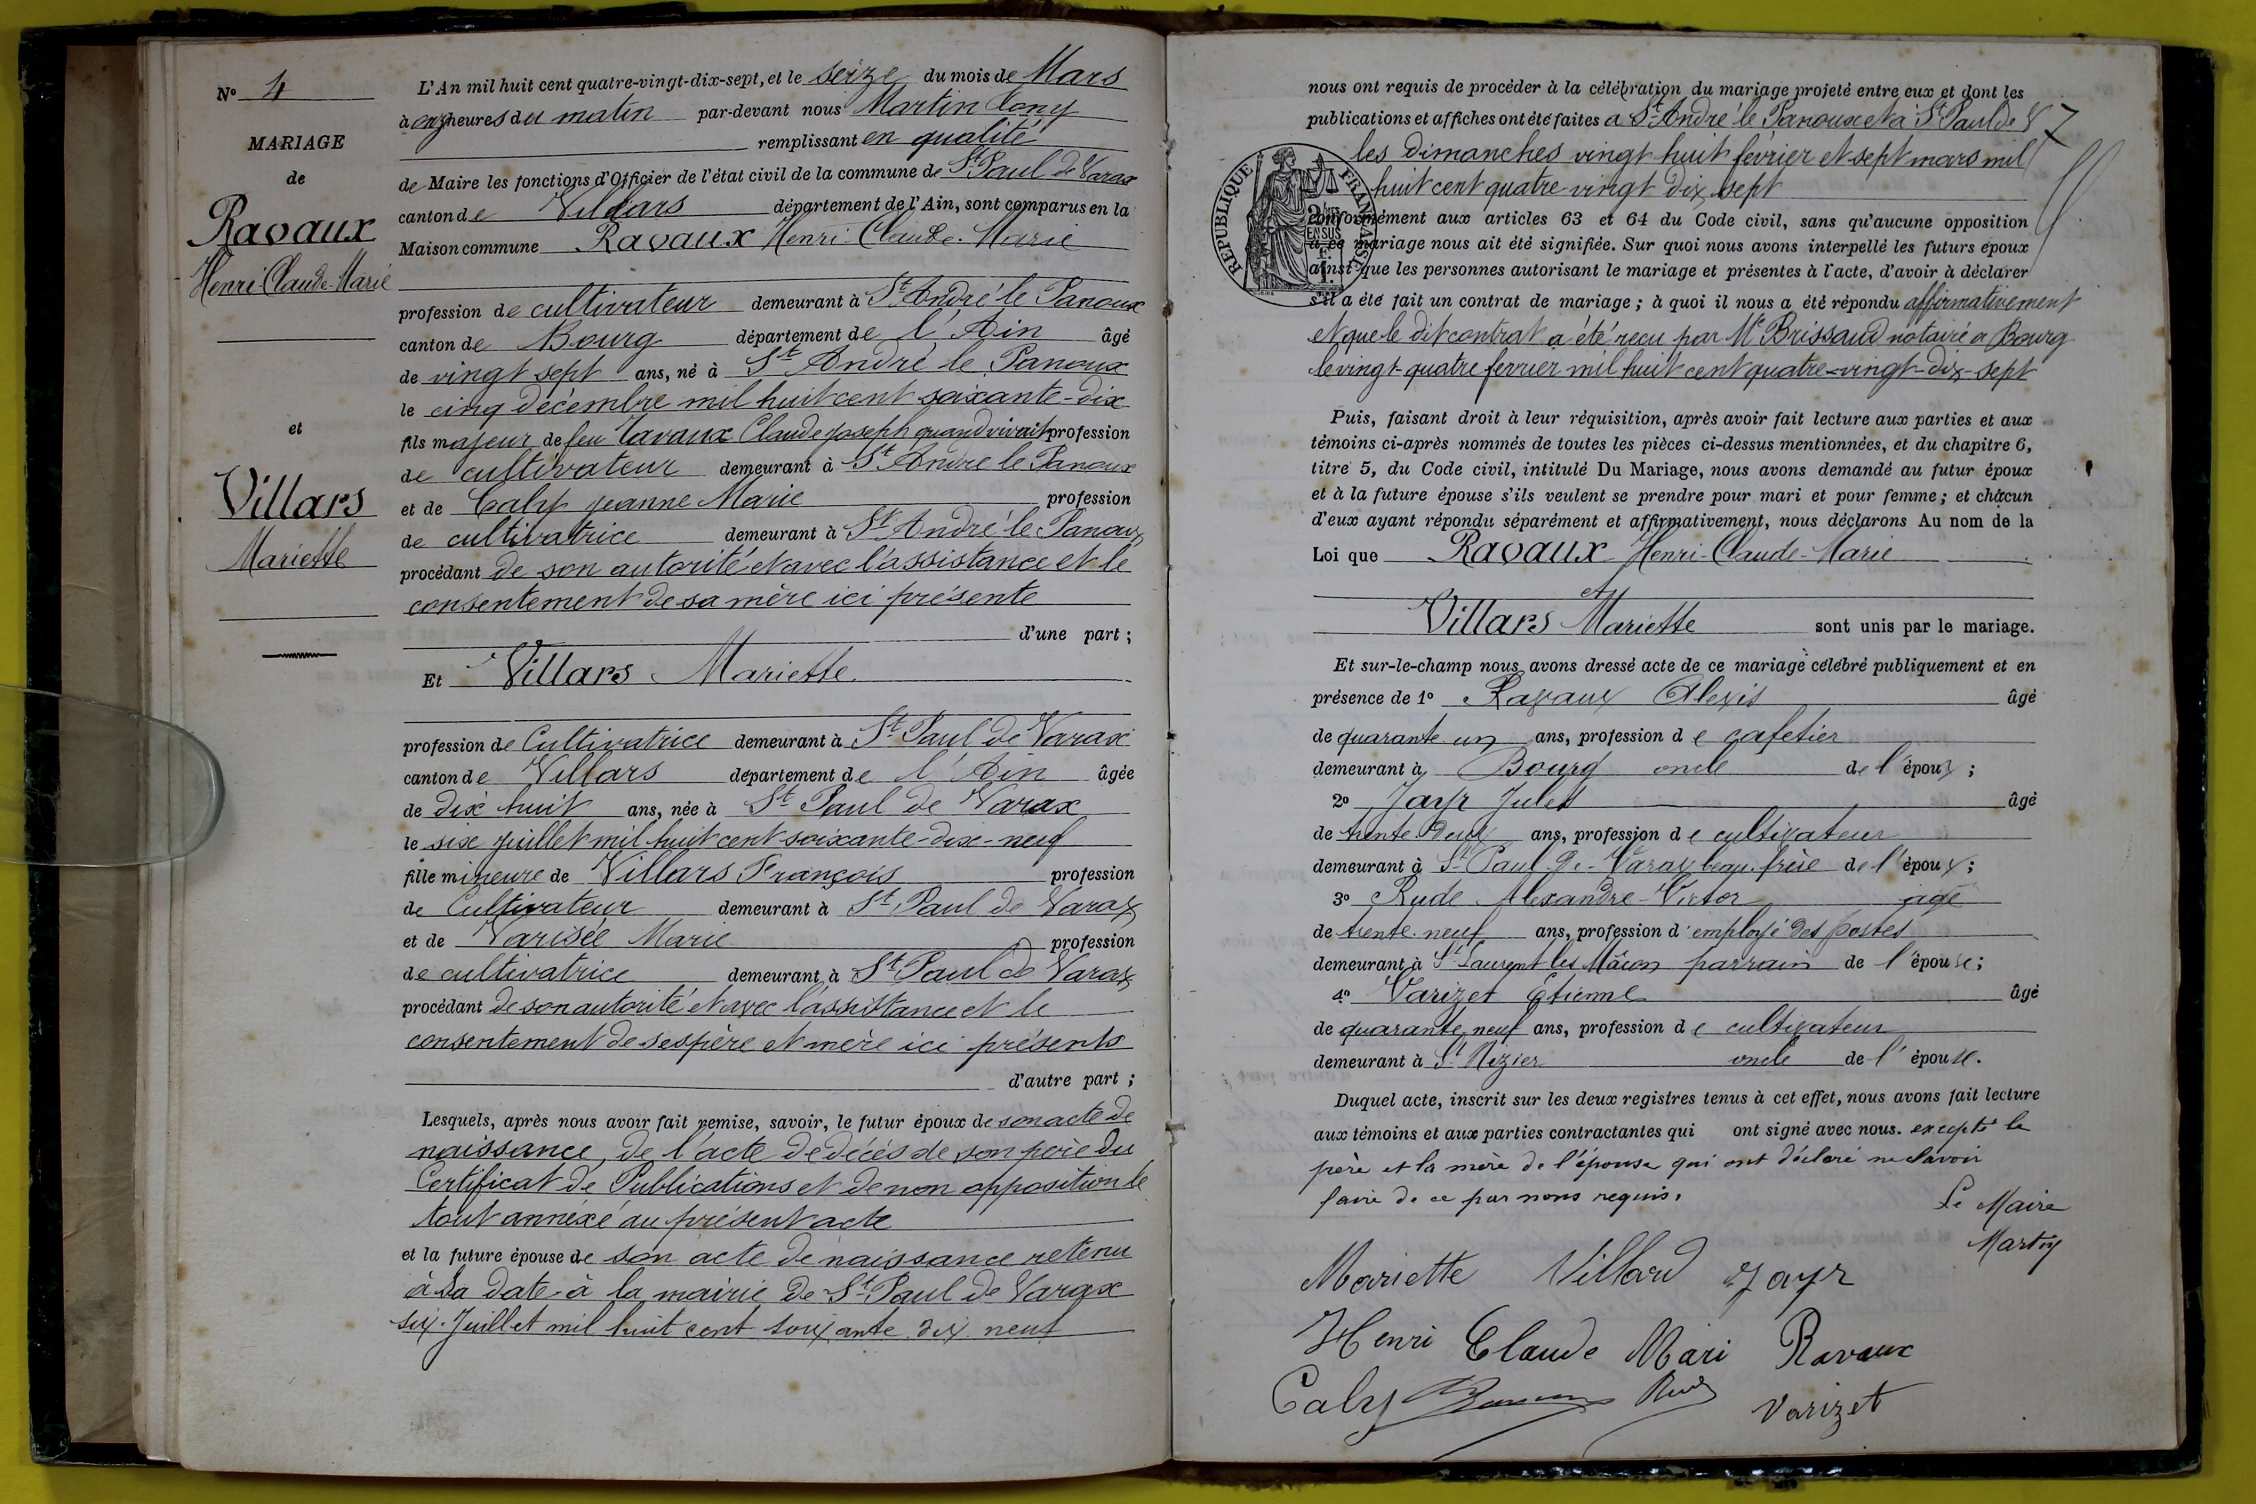 N° 4
MARIAGE
de
Ravaux
Henri-Claude-Marie
et
Villars
Mariette
L'An mil huit cent quatre-vingt-dix-sept, et le seize du mois de Mars
à onze heures du matin par-devant nous Martin Cony
remplissant en qualité
de Maire les fonctions d'Officier de l'état civil de la commune de St Paul de Varax
canton de Villars département de l'Ain, sont comparus en la
Maison commune Ravaux Henri-Claude-Marie
profession de cultivateur demeurant à St André le Panoux
canton de Bourg département de l'Ain âgé
de vingt sept ans, né à St André le Panoux
le cinq décembre mil huit cent soixante-dix
fils majeur de feu Ravaux Claude Joseph quand vivait profession
de cultivateur demeurant à St André le Panoux
et de Caly Jeanne Marie profession
de cultivatrice demeurant à St André le Panoux
procédant de son autorité et avec l'assistance et le
consentement de sa mère ici présente
d'une part ;
Et Villars Mariette
profession de Cultivatrice demeurant à St Paul de Varax
canton de Villars département de l'Ain âgée
de dix huit ans, née à St Paul de Varax
le six juillet mil huit cent soixante-dix-neuf
fille mineure de Villars François profession
de Cultivateur demeurant à St Paul de Varax
et de Varisée Marie profession
de cultivatrice demeurant à St Paul de Varax
procédant de son autorité et avec l'assistance et le
consentement de ses père et mère ici présents
d'autre part ;
Lesquels, après nous avoir fait remise, savoir, le futur époux de son acte de
naissance, de l'acte de décès de son père du
Certificat de Publications et de non opposition le
tout annexé au présent acte
et la future épouse de son acte de naissance retenu
à sa date à la mairie de St Paul de Varax
six Juillet mil huit cent soixante dix neuf
nous ont requis de procéder à la célébration du mariage projeté entre eux et dont les
publications et affiches ont été faites a St André le Panoux et à St Paul de V
les dimanches vingt huit fevrier et sept mars mil
huit cent quatre-vingt dix sept
RÉPUBLIQUE FRANÇAISE
conformément aux articles 63 et 64 du Code civil, sans qu'aucune opposition
à ce mariage nous ait été signifiée. Sur quoi nous avons interpellé les futurs époux
ainsi que les personnes autorisant le mariage et présentes à l'acte, d'avoir à déclarer
s'il a été fait un contrat de mariage ; à quoi il nous a été répondu affirmativement
et que le dit contrat a été reçu par Me Brissaud notaire a Bourg
le vingt-quatre fevrier mil huit cent quatre-vingt-dix-sept
Puis, faisant droit à leur réquisition, après avoir fait lecture aux parties et aux
témoins ci-après nommés de toutes les pièces ci-dessus mentionnées, et du chapitre 6,
titre 5, du Code civil, intitulé Du Mariage, nous avons demandé au futur époux
et à la future épouse s'ils veulent se prendre pour mari et pour femme ; et chacun
d'eux ayant répondu séparément et affirmativement, nous déclarons Au nom de la
Loi que Ravaux Henri-Claude-Marie
et
Villars Mariette sont unis par le mariage.
Et sur-le-champ nous avons dressé acte de ce mariage célébré publiquement et en
présence de 1° Ravaux Alexis âgé
de quarante un ans, profession de cafetier
demeurant à Bourg oncle de l'époux ;
2° Jayr Jules âgé
de trente deux ans, profession de cultivateur
demeurant à St Paul de-Varax beau-frère de l'époux ;
3° Rude Alexandre-Victor agé
de trente-neuf ans, profession d'employé des postes
demeurant à St Laurent les Mâcon parrain de l'épouse ;
4° Varizet Étienne âgé
de quarante neuf ans, profession de cultivateur
demeurant à St Nizier oncle de l'épouse.
Duquel acte, inscrit sur les deux registres tenus à cet effet, nous avons fait lecture
aux témoins et aux parties contractantes qui ont signé avec nous. excepté le
père et la mère de l'épouse qui ont déclaré ne savoir
faire de ce par nous requis.
Le Maire
Martin
Mariette Villard Jayr
Henri Claude Mari Ravaux
Caly Ravaux Rude Varizet